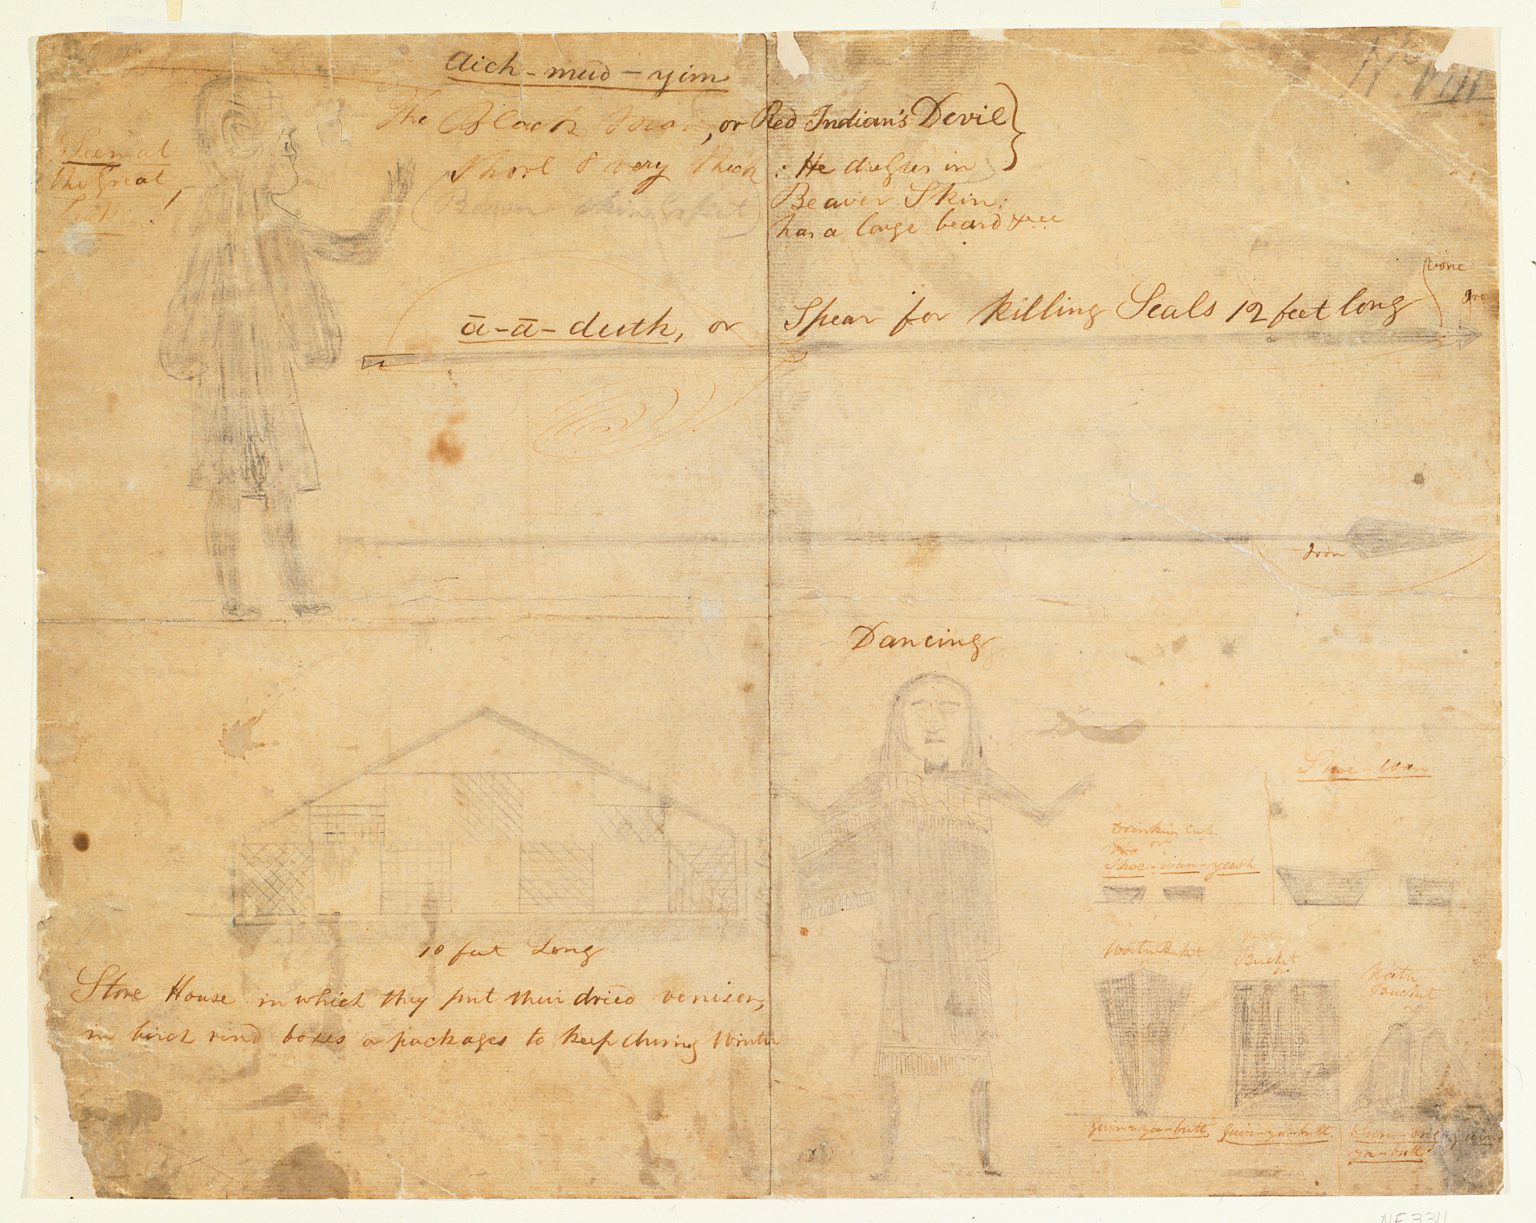 Aich-mud-yim
No VIII
The Black Man, or Red Indian's Devil
short & very thick : He dresses in
Beaver Skin:
has a large beard &cc
the Great
ā-ā-duth, or Spear for killing Seals 12 feet long
bone
Iron
Dancing
Shoe-wan
Drinking Cup
or
Shoe-wan-yeesh
10 feet Long
Store House in which they put their dried venison,
in birch rind boxes or packages to keep during Winter
Water Bucket
Bucket
Water
Bucket
guin-ya-butt
guin-ya-butt
ya-butt
NF 3311